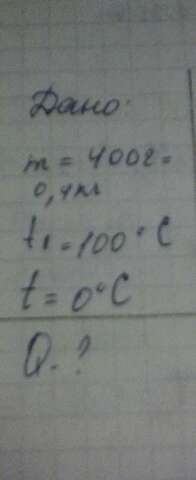 Дано:
m = 400г =
0,4кг
t₁ = 100°C
t = 0°C
Q - ?